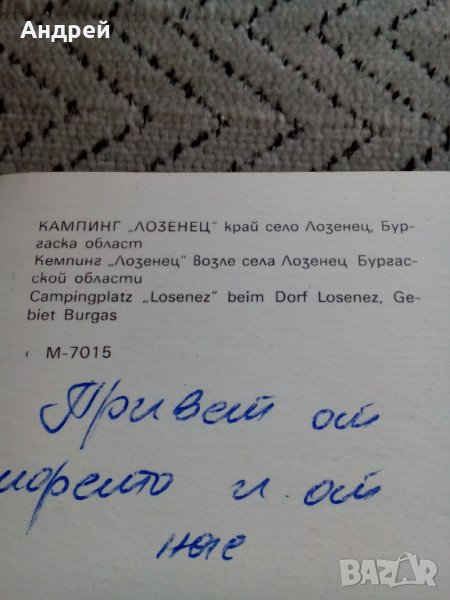 Андрей
КАМПИНГ „ЛОЗЕНЕЦ" край село Лозенец, Бур-
гаска област
Кемпинг „Лозенец" возле села Лозенец Бургас-
ской области
Campingplatz „Losenez" beim Dorf Losenez, Ge-
biet Burgas
М-7015
Привет от
морето и от
нас
BAZAR